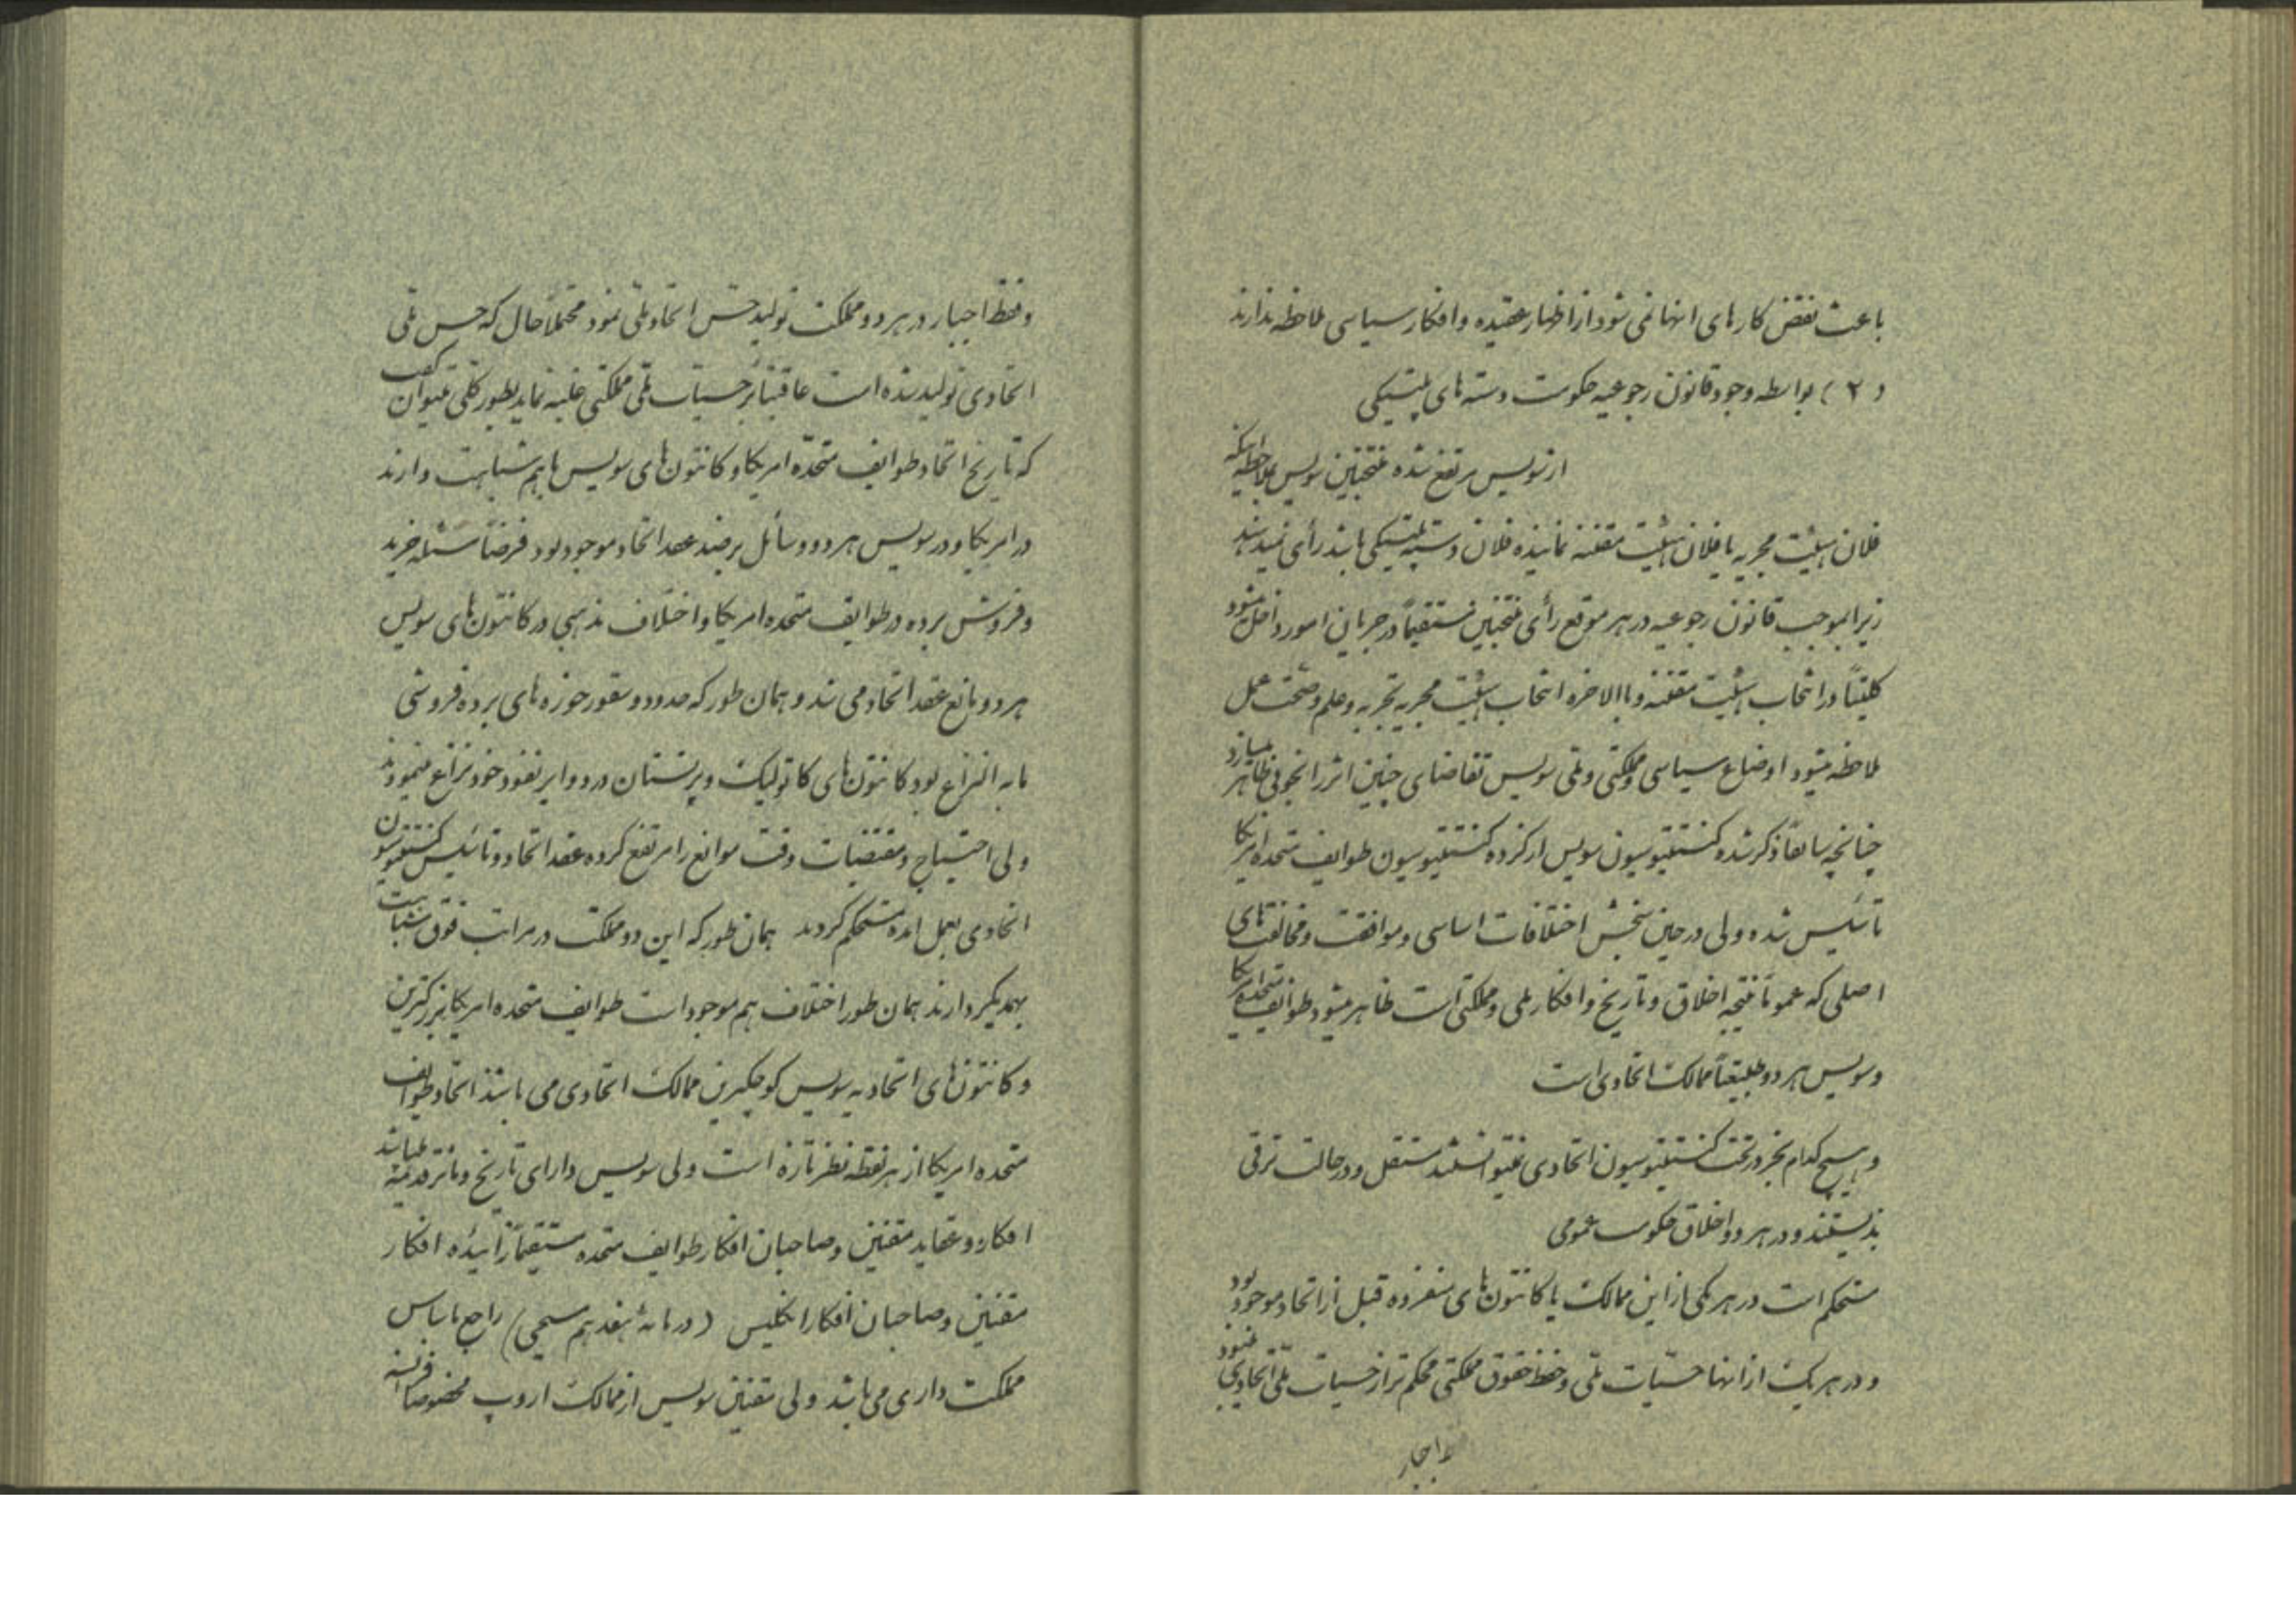 باعث نقض کارهای انها نمی شود از اظهار عقیده و افکار سیاسی ملاحظه ندارند
(۲) بواسطه وجود قانون رجوعیه حکومت دسته های پلتیکی
از سویس مرتفع شده منتخبین سویس بملاحظه اینکه
فلان هیئت مجریه یا فلان هیئت مقننه نماینده فلان دسته پلتیکی باشد رأی نمیدهند
زیرا بموجب قانون رجوعیه در هر موقع رأی منتخبین مستقیماً در جریان امور داخل میشود
کلیتاً در انتخاب هیئت مقننه و باالاخره انتخاب هیئت مجریه تجربه و علم و صحت عمل
ملاحظه میشود اوضاع سیاسی و مملکتی و ملی سویس تقاضای چنین اثر را بخوبی ظاهر میسازد
چنانچه سابقاً ذکر شد کنستیتیوسیون سویس از کرده کنستیتیوسیون طوایف متحده امریکا
تأسیس شده ولی در حین سنجش اختلافات اساسی و موافقت و مخالفت های
اصلی که عموماً نتیجه اخلاق و تاریخ و افکار ملی و مملکتی است ظاهر میشود طوایف متحده امریکا
و سویس هر دو طبیعتاً ممالک اتحادی است
و هیچ کدام بجز در تحت کنستیتیوسیون اتحادی نمیتوانستند مستقل و در حالت ترقی
بذیستند و در هر دو اخلاق حکومت عمومی
مستحکم است در هر یکی از این ممالک یا کانتون های منفرده قبل از اتحاد موجود بود
و در هر یک از انها حسیّات ملّی و حفظ حقوق مملکتی محکم تر از حسیات ملّی اتحادی
و اجبار
و فقط اجبار در هر دو مملکت تولید حسّ اتحاد ملّی نمود محتملاً حال که حس ملّی
اتحادی تولید شده است عاقبتاً بر حسیّات ملّی مملکتی غلبه نماید بطور کلّی میتوان گفت
که تاریخ اتحاد طوایف متحدّه امریکا و کانتون های سویس باهم شباهت دارند
در امریکا و در سویس هر دو وسائل بر ضد عقد اتحاد موجود بود فرضاً مسئله خرید
و فروش برده در طوایف متحده امریکا و اختلاف مذهبی در کانتون های سویس
هر دو مانع عقد اتحاد می شد و همان طور که حدود و سقور حوزه های برده فروشی
مابه النزاع بود کانتون های کاتولیک و پرتستان در دوایر نفوذ خود نزاع مینمودند
ولی احتیاج و مقتضیات وقت موانع را مرتفع کرده عقد اتحاد و تأسیس کنستیتیوسیون
اتحادی بعمل امده مستحکم گردید همان طور که این دو مملکت در مراتب فوق شباهت
بهمدیگر دارند همان طور اختلاف هم موجود است طوایف متحده امریکا بزرگترین
و کانتون های اتحادیه سویس کوچکترین ممالک اتحادی می باشند اتحاد طوایف
متحده امریکا از هر نقطه نظر تازه است ولی سویس دارای تاریخ و مآثر قدیمه میباشد
افکار و عقاید مقننین و صاحبان افکار طوایف متحده مستقیماً زائیده افکار
مقننین و صاحبان افکار انگلیس (در مائه هفدهم مسیحی) راجع باساس
مملکت داری می باشد ولی مقننین سویس از ممالک اروپ مخصوصاً فرانسه